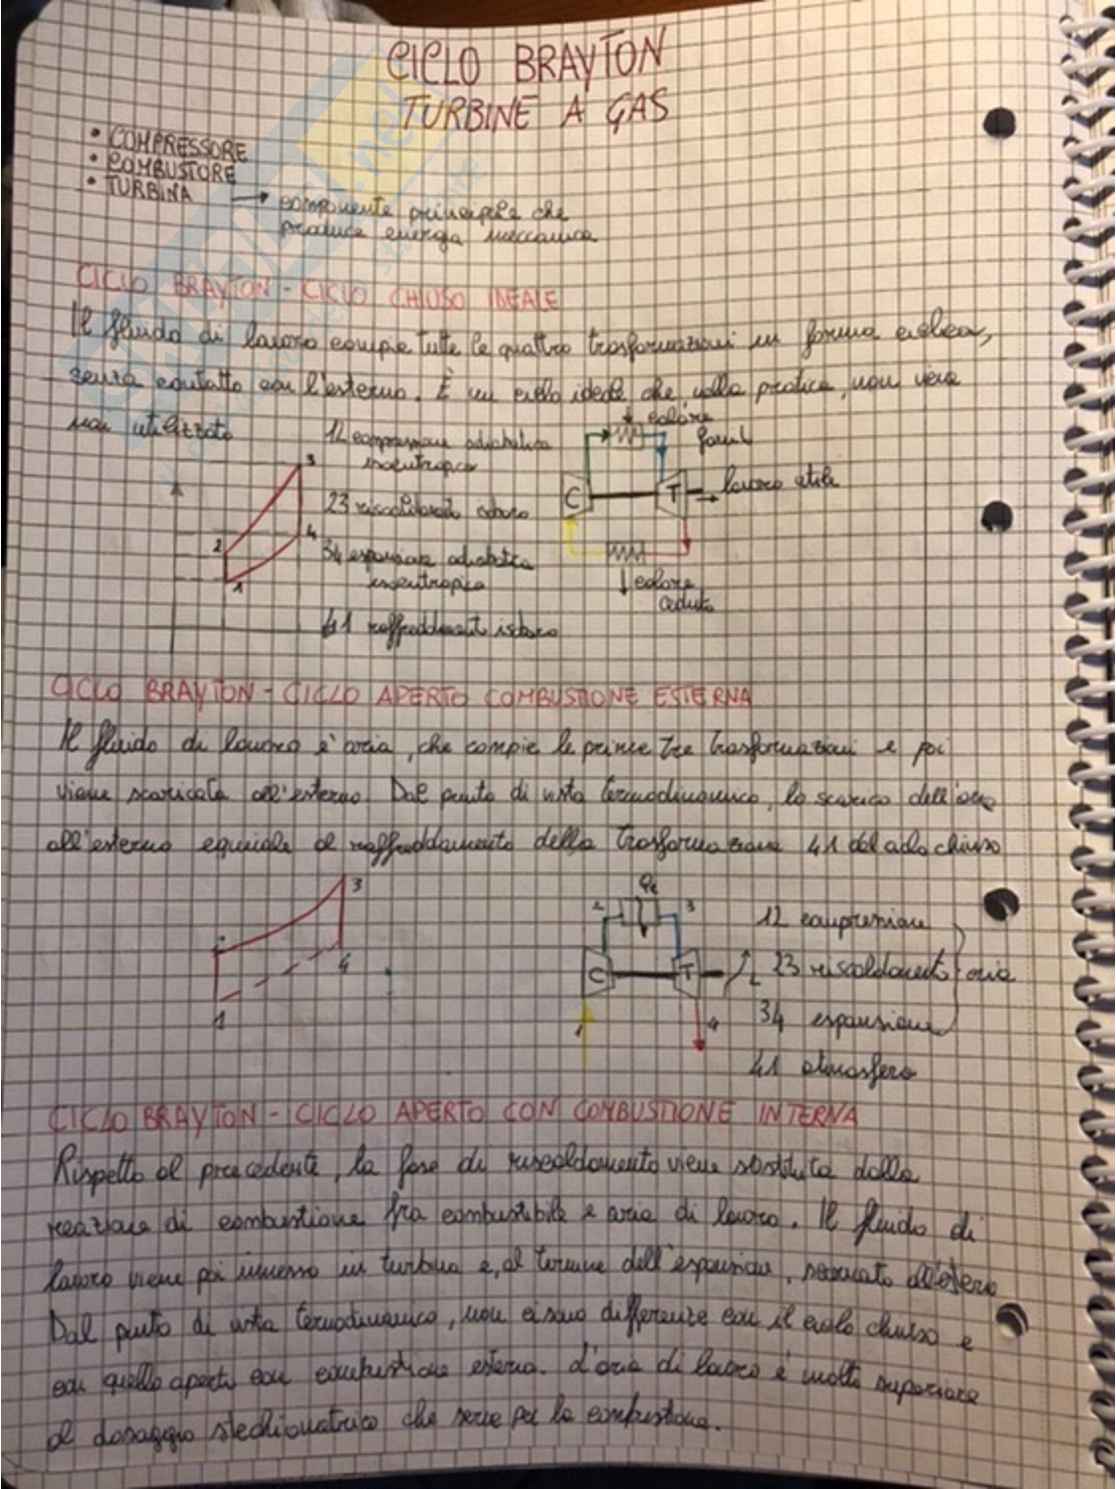 CICLO BRAYTON
TURBINE A GAS
• COMPRESSORE
• COMBUSTORE
• TURBINA → componente principale che
produce energia meccanica
CICLO BRAYTON - CICLO CHIUSO IDEALE
Il fluido di lavoro compie tutte le quattro trasformazioni in forma ciclica,
senza contatto con l'esterno. È un ciclo ideale che, nella pratica, non viene
mai utilizzato
12 compressione adiabatica
isoentropica
23 riscaldament isobaro
34 espansione adiabatica
isoentropica
41 raffreddament isobaro
1
2
3
4
calore
fornit
C
T
lavoro utile
calore
ceduto
CICLO BRAYTON - CICLO APERTO COMBUSTIONE ESTERNA
Il fluido di lavoro è aria, che compie le prime tre trasformazioni e poi
viene scaricata all'esterno. Dal punto di vista termodinamico, lo scarico dell'aria
all'esterno equivale al raffreddamento della trasformazione 41 del ciclo chiuso
1
2
3
4
2
3
C
T
L
1
4
12 compressione
23 riscaldamento
34 espansione
aria
41 atmosfera
CICLO BRAYTON - CICLO APERTO CON COMBUSTIONE INTERNA
Rispetto al precedente, la fase di riscaldamento viene sostituita dalla
reazione di combustione fra combustibile e aria di lavoro. Il fluido di
lavoro viene poi immesso in turbina e, al termine dell'espansione, scaricato all'esterno
Dal punto di vista termodinamico, non ci sono differenze con il ciclo chiuso e
con quello aperto con combustione esterna. L'aria di lavoro è molto superiore
al dosaggio stechiometrico che serve per la combustione.